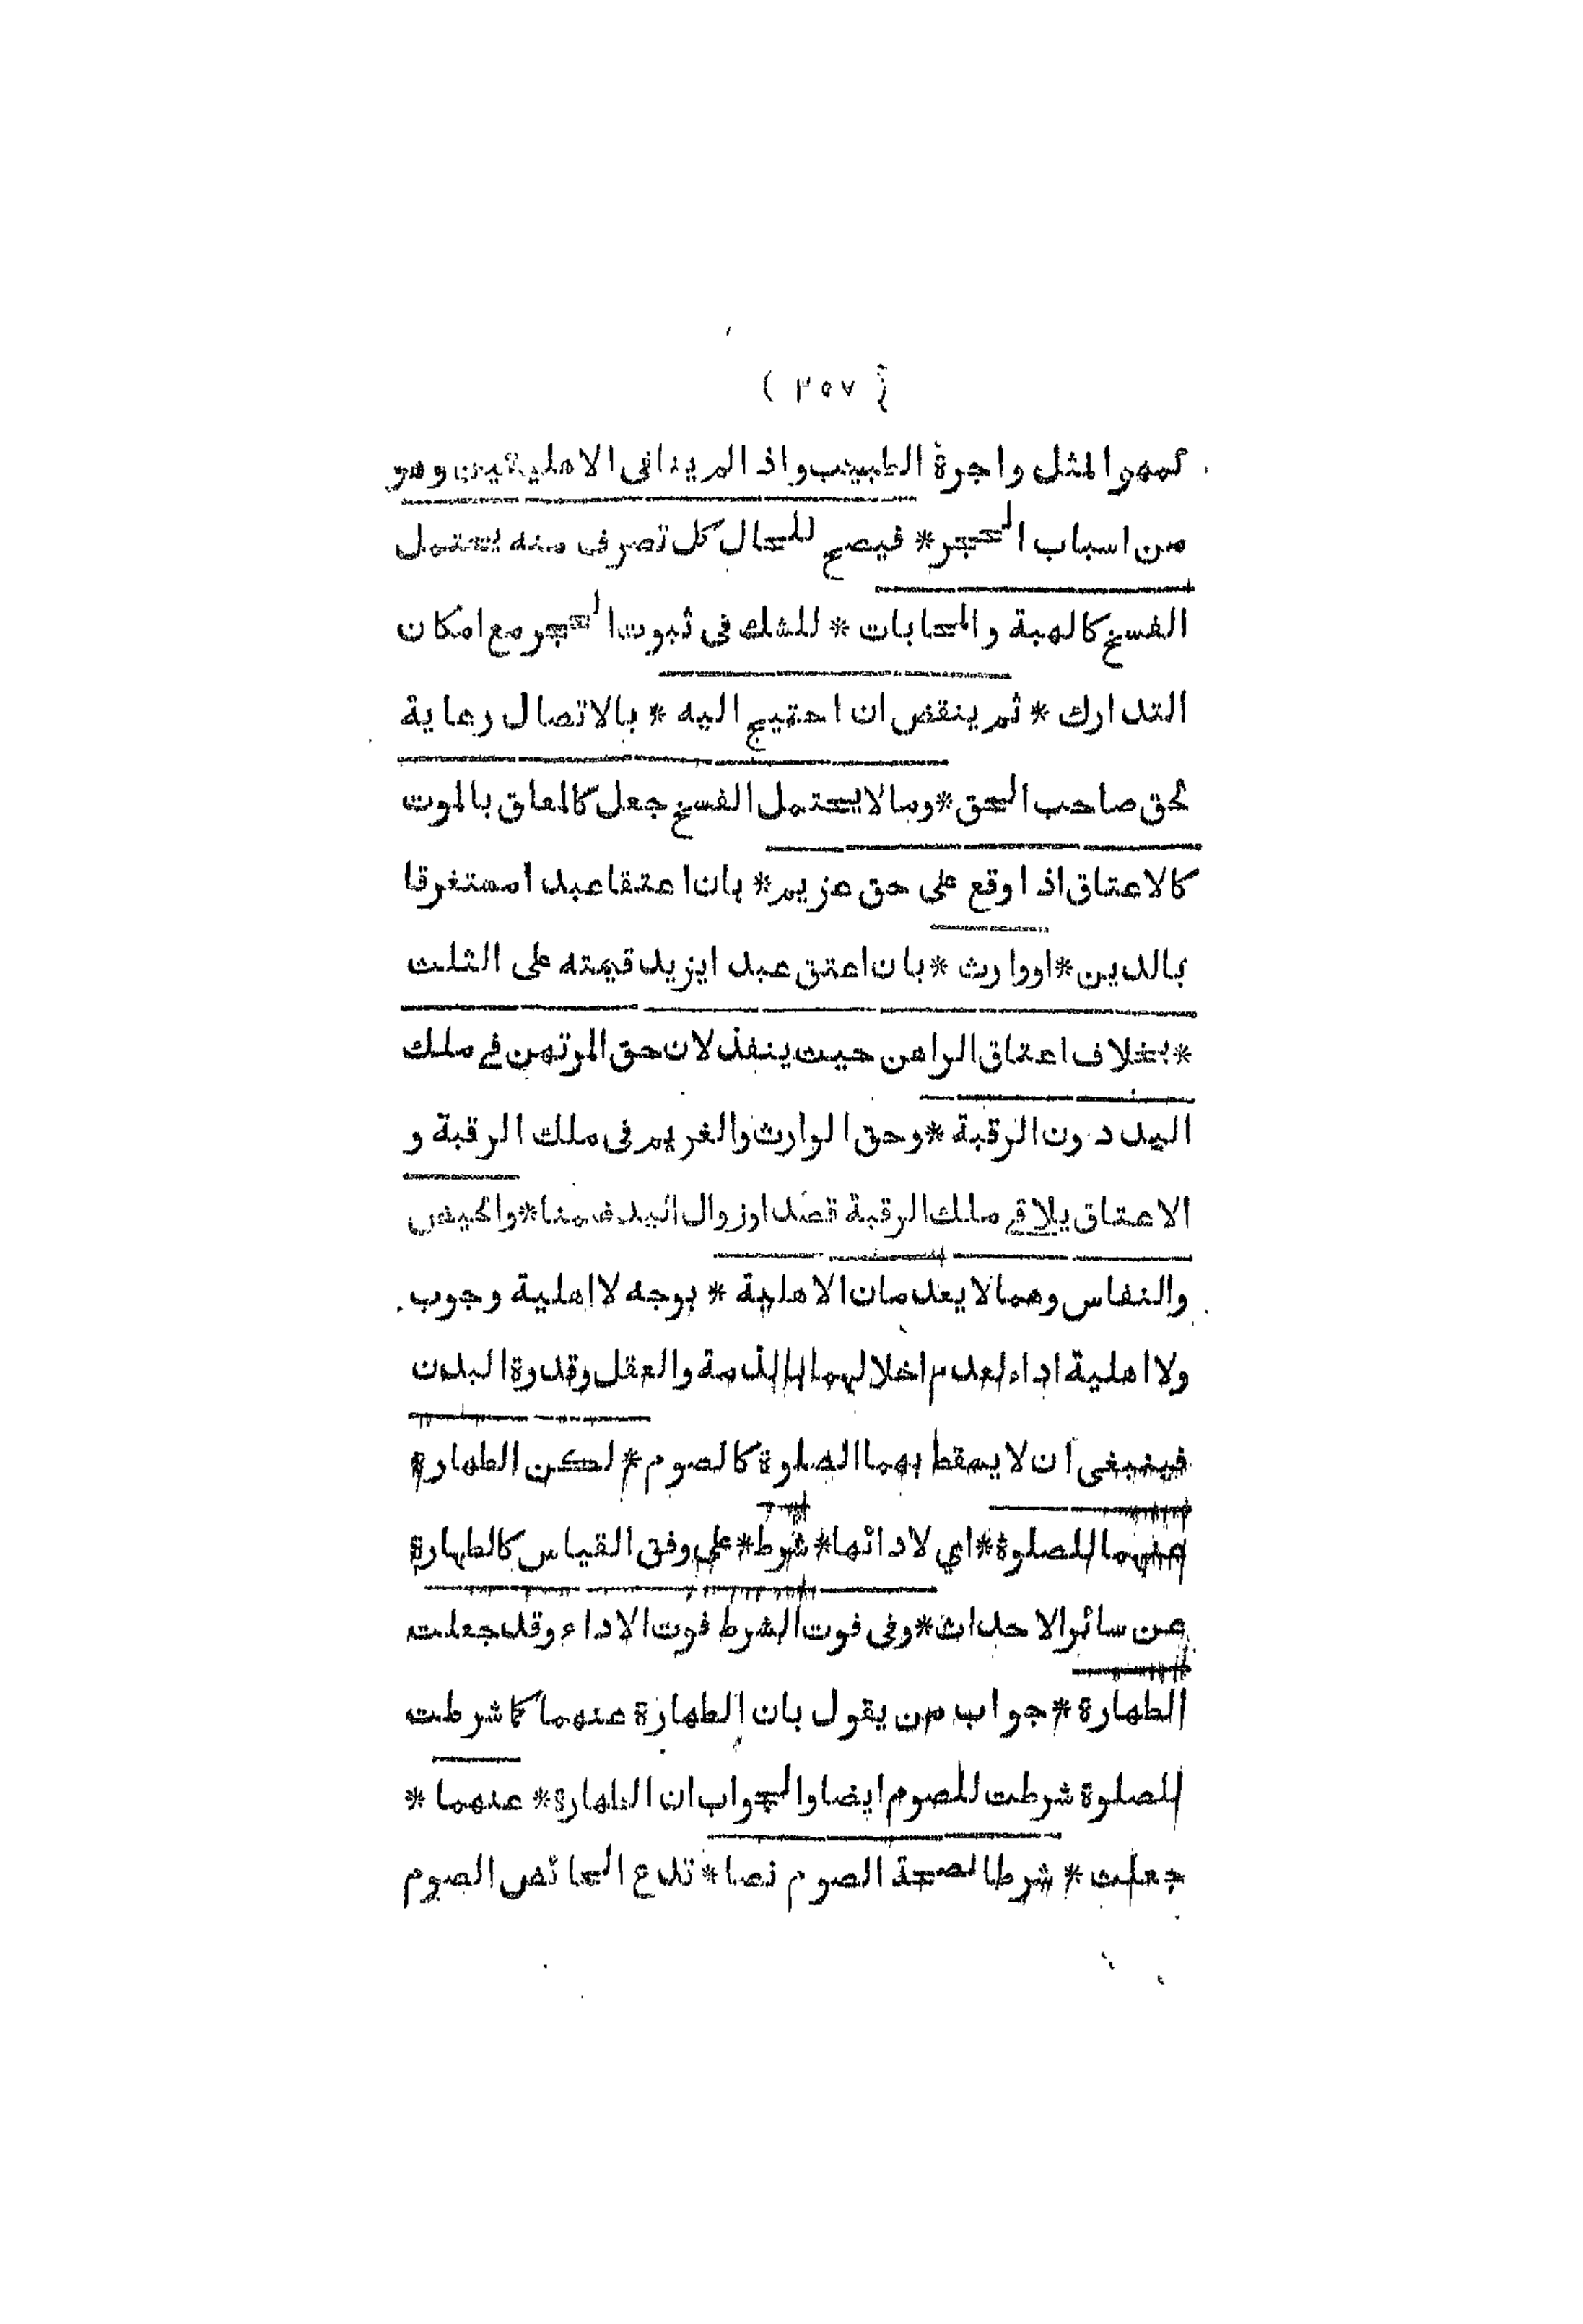 ( ٣٥٧ )
كمهر المثل واجرة الطبيب واذ الم يناف الاهليتين وهو
من اسباب الحجر * فيصح للحال كل تصرف منه يحتمل
الفسخ كالهبة والمحابات * للشك فى ثبوت الحجر مع امكان
التدارك * ثم ينقض ان احتيج اليه * بالاتصال رعاية
لحق صاحب الحق * وما لا يحتمل الفسخ جعل كالمعلق بالموت
كالاعتاق اذا وقع على حق غريم * بان اعتقا عبدا مستغرقا
بالدين * او وارث * بان اعتق عبدا يزيد قيمته على الثلث
* بخلاف اعتاق الراهن حيث ينفذ لان حق المرتهن في ملك
اليد دون الرقبة * وحق الوارث والغريم فى ملك الرقبة و
الاعتاق يلاقي ملك الرقبة قصدا وزوال اليد ضمنا * والحيض
والنفاس وهما لا يعدمان الاهلية * بوجه لا اهلية وجوب
ولا اهلية اداء لعدم اخلالهما بالذمة والعقل وقدرة البدن
فينبغى ان لا يسقط بهما الصلوة كالصوم * لكن الطهارة
عنهما للصلوة * اي لادائها * شرط * على وفق القياس كالطهارة
عن سائر الاحداث * وفى فوت الشرط فوت الاداء وقد جعلت
الطهارة * جواب من يقول بان الطهارة عنهما كما شرطت
للصلوة شرطت للصوم ايضا والجواب ان الطهارة * عنهما *
جعلت * شرطا لصحة الصوم نصا * تدع الحائض الصوم